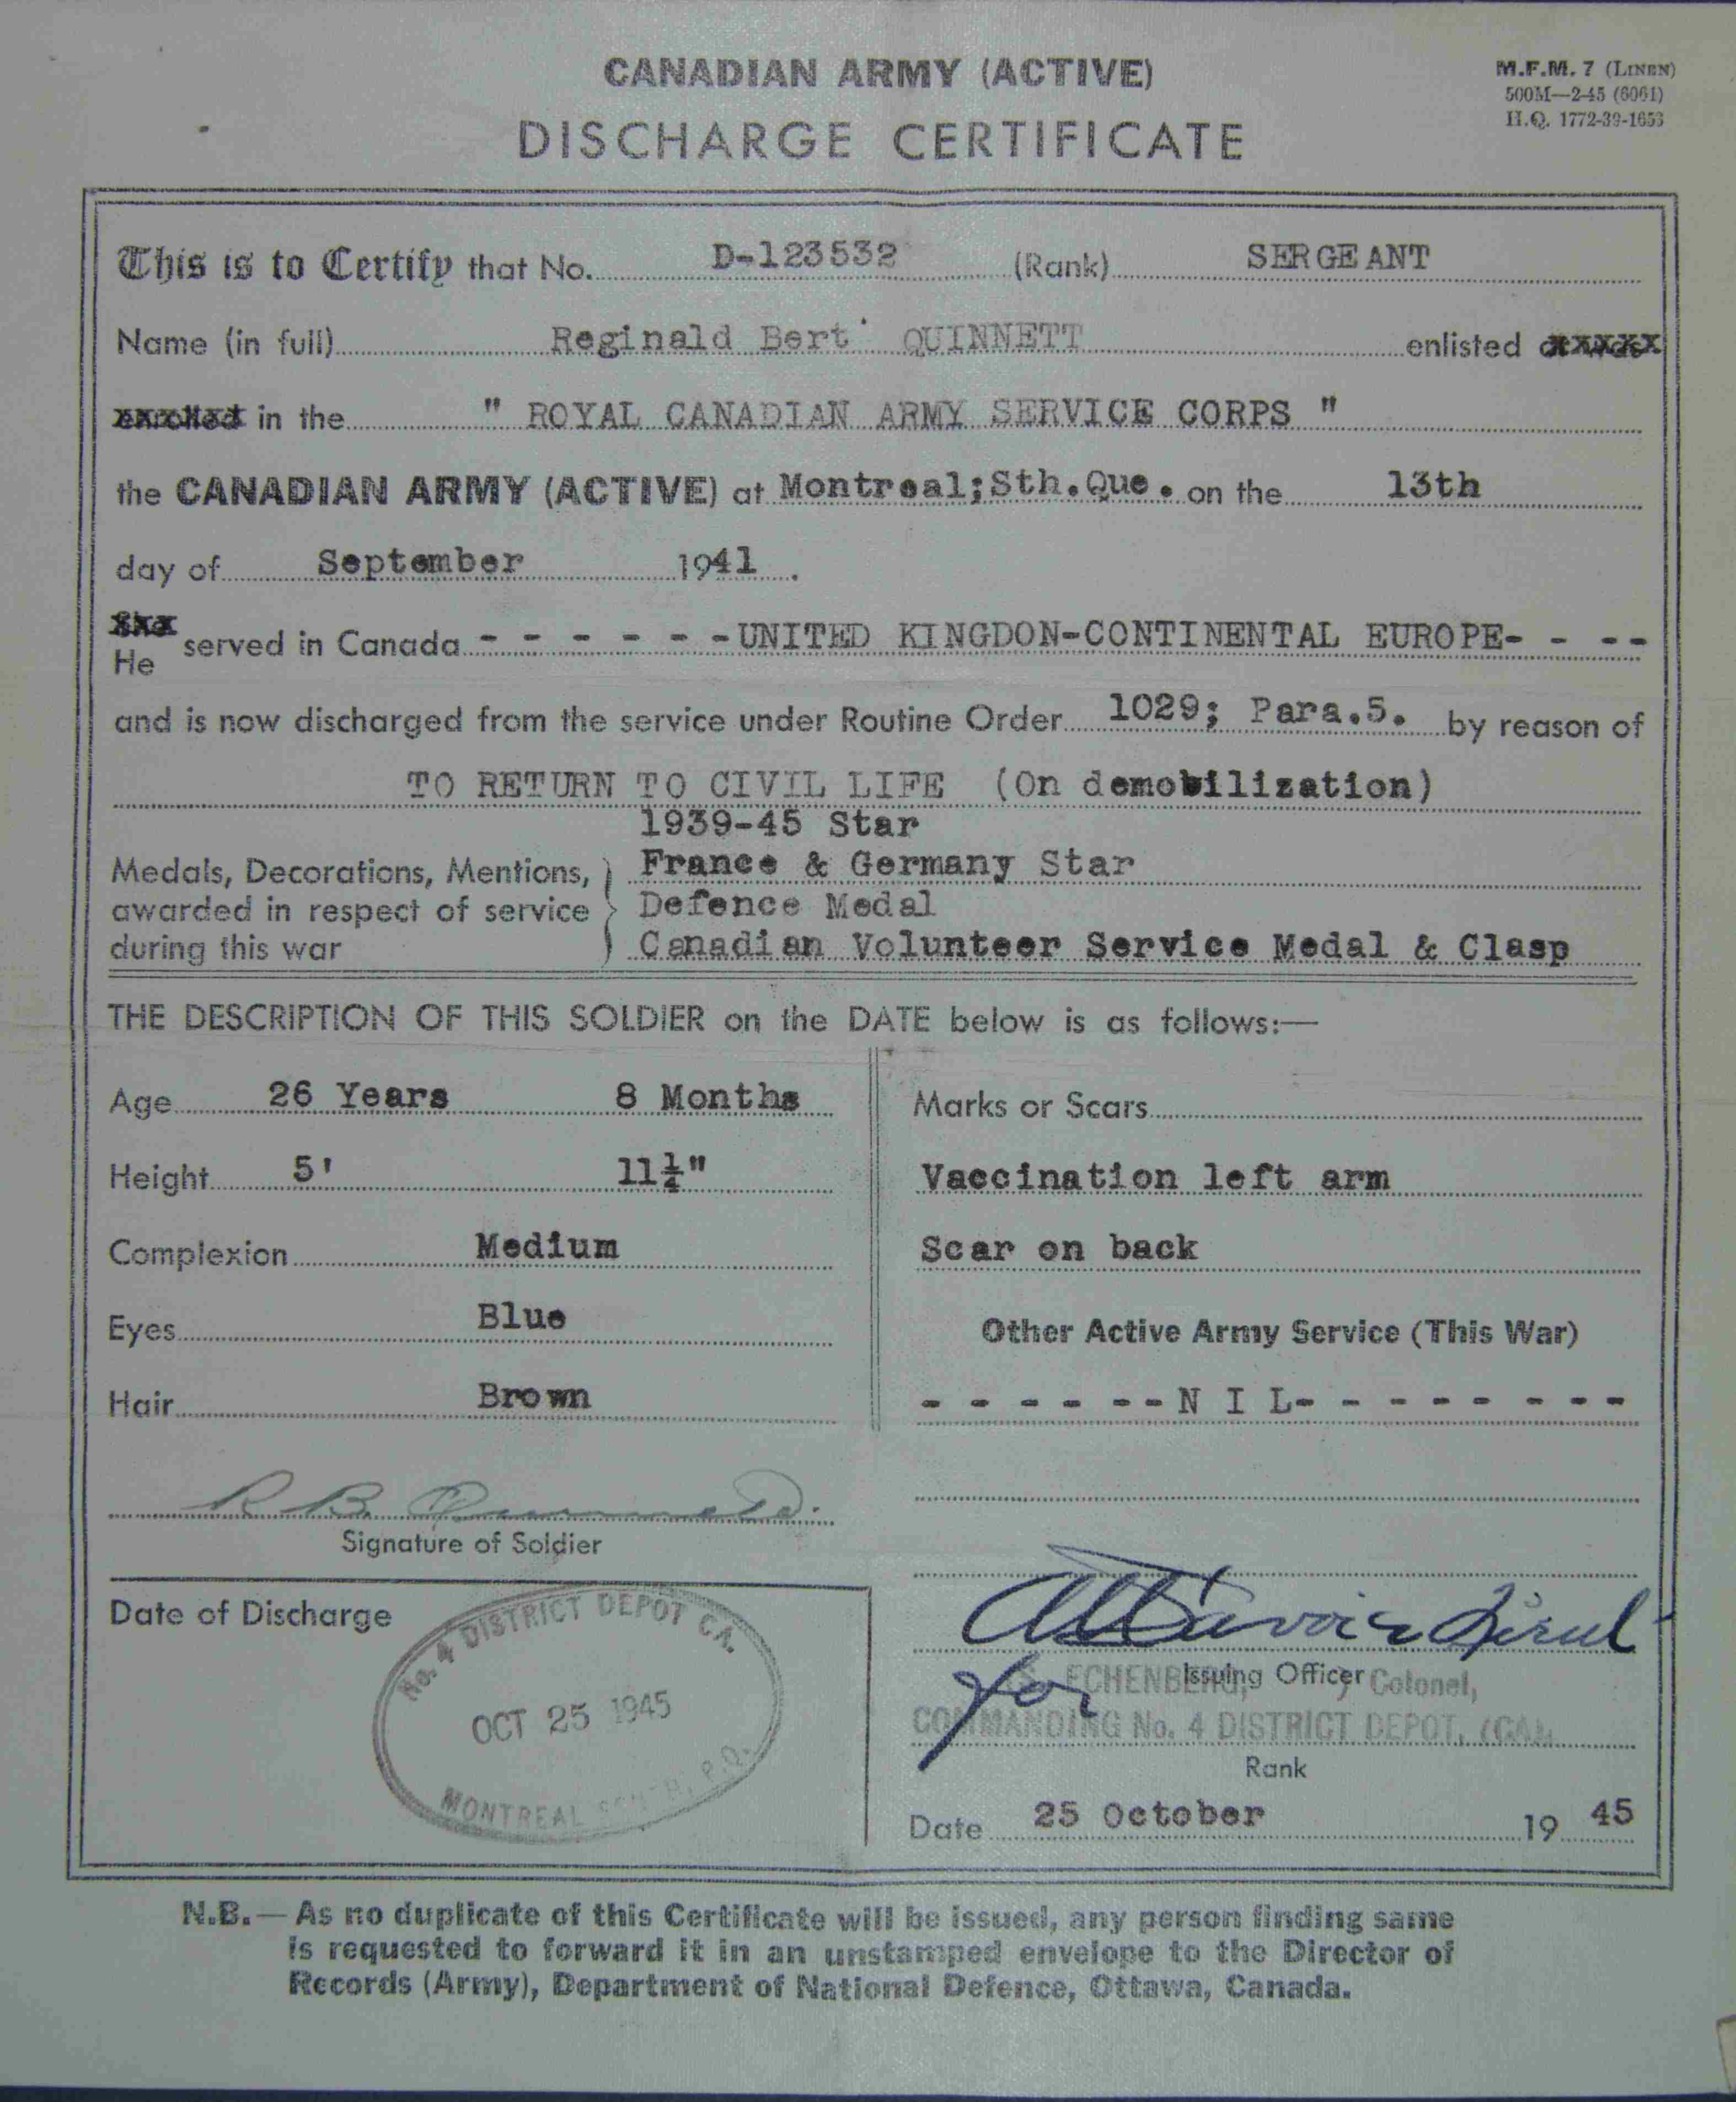 CANADIAN ARMY (ACTIVE)
DISCHARGE CERTIFICATE
M.F.M. 7 (LINEN)
500M—2-45 (6061)
H.Q. 1772-39-1653
This is to Certify that No. D-123532 (Rank) SERGEANT
Name (in full) Reginald Bert QUINNETT enlisted
in the " ROYAL CANADIAN ARMY SERVICE CORPS "
the CANADIAN ARMY (ACTIVE) at Montreal;Sth.Que. on the 13th
day of September 1941.
She
He served in Canada - - - - - -UNITED KINGDON-CONTINENTAL EUROPE- - --
and is now discharged from the service under Routine Order 1029; Para.5. by reason of
TO RETURN TO CIVIL LIFE (On demobilization)
Medals, Decorations, Mentions, awarded in respect of service during this war
1939-45 Star
France & Germany Star
Defence Medal
Canadian Volunteer Service Medal & Clasp
THE DESCRIPTION OF THIS SOLDIER on the DATE below is as follows:—
Age 26 Years 8 Months
Height 5' 11¼"
Complexion Medium
Eyes Blue
Hair Brown
Marks or Scars
Vaccination left arm
Scar on back
Other Active Army Service (This War)
- - - - - --N I L- - - - - - - - -
R B. Quinnett.
Signature of Soldier
Date of Discharge
No. 4 DISTRICT DEPOT C.A.
OCT 25 1945
MONTREAL SOUTH, P.Q.
for
Issuing Officer
Colonel,
COMMANDING No. 4 DISTRICT DEPOT, (CA)
Rank
Date 25 October 19 45
N.B.— As no duplicate of this Certificate will be issued, any person finding same
is requested to forward it in an unstamped envelope to the Director of
Records (Army), Department of National Defence, Ottawa, Canada.